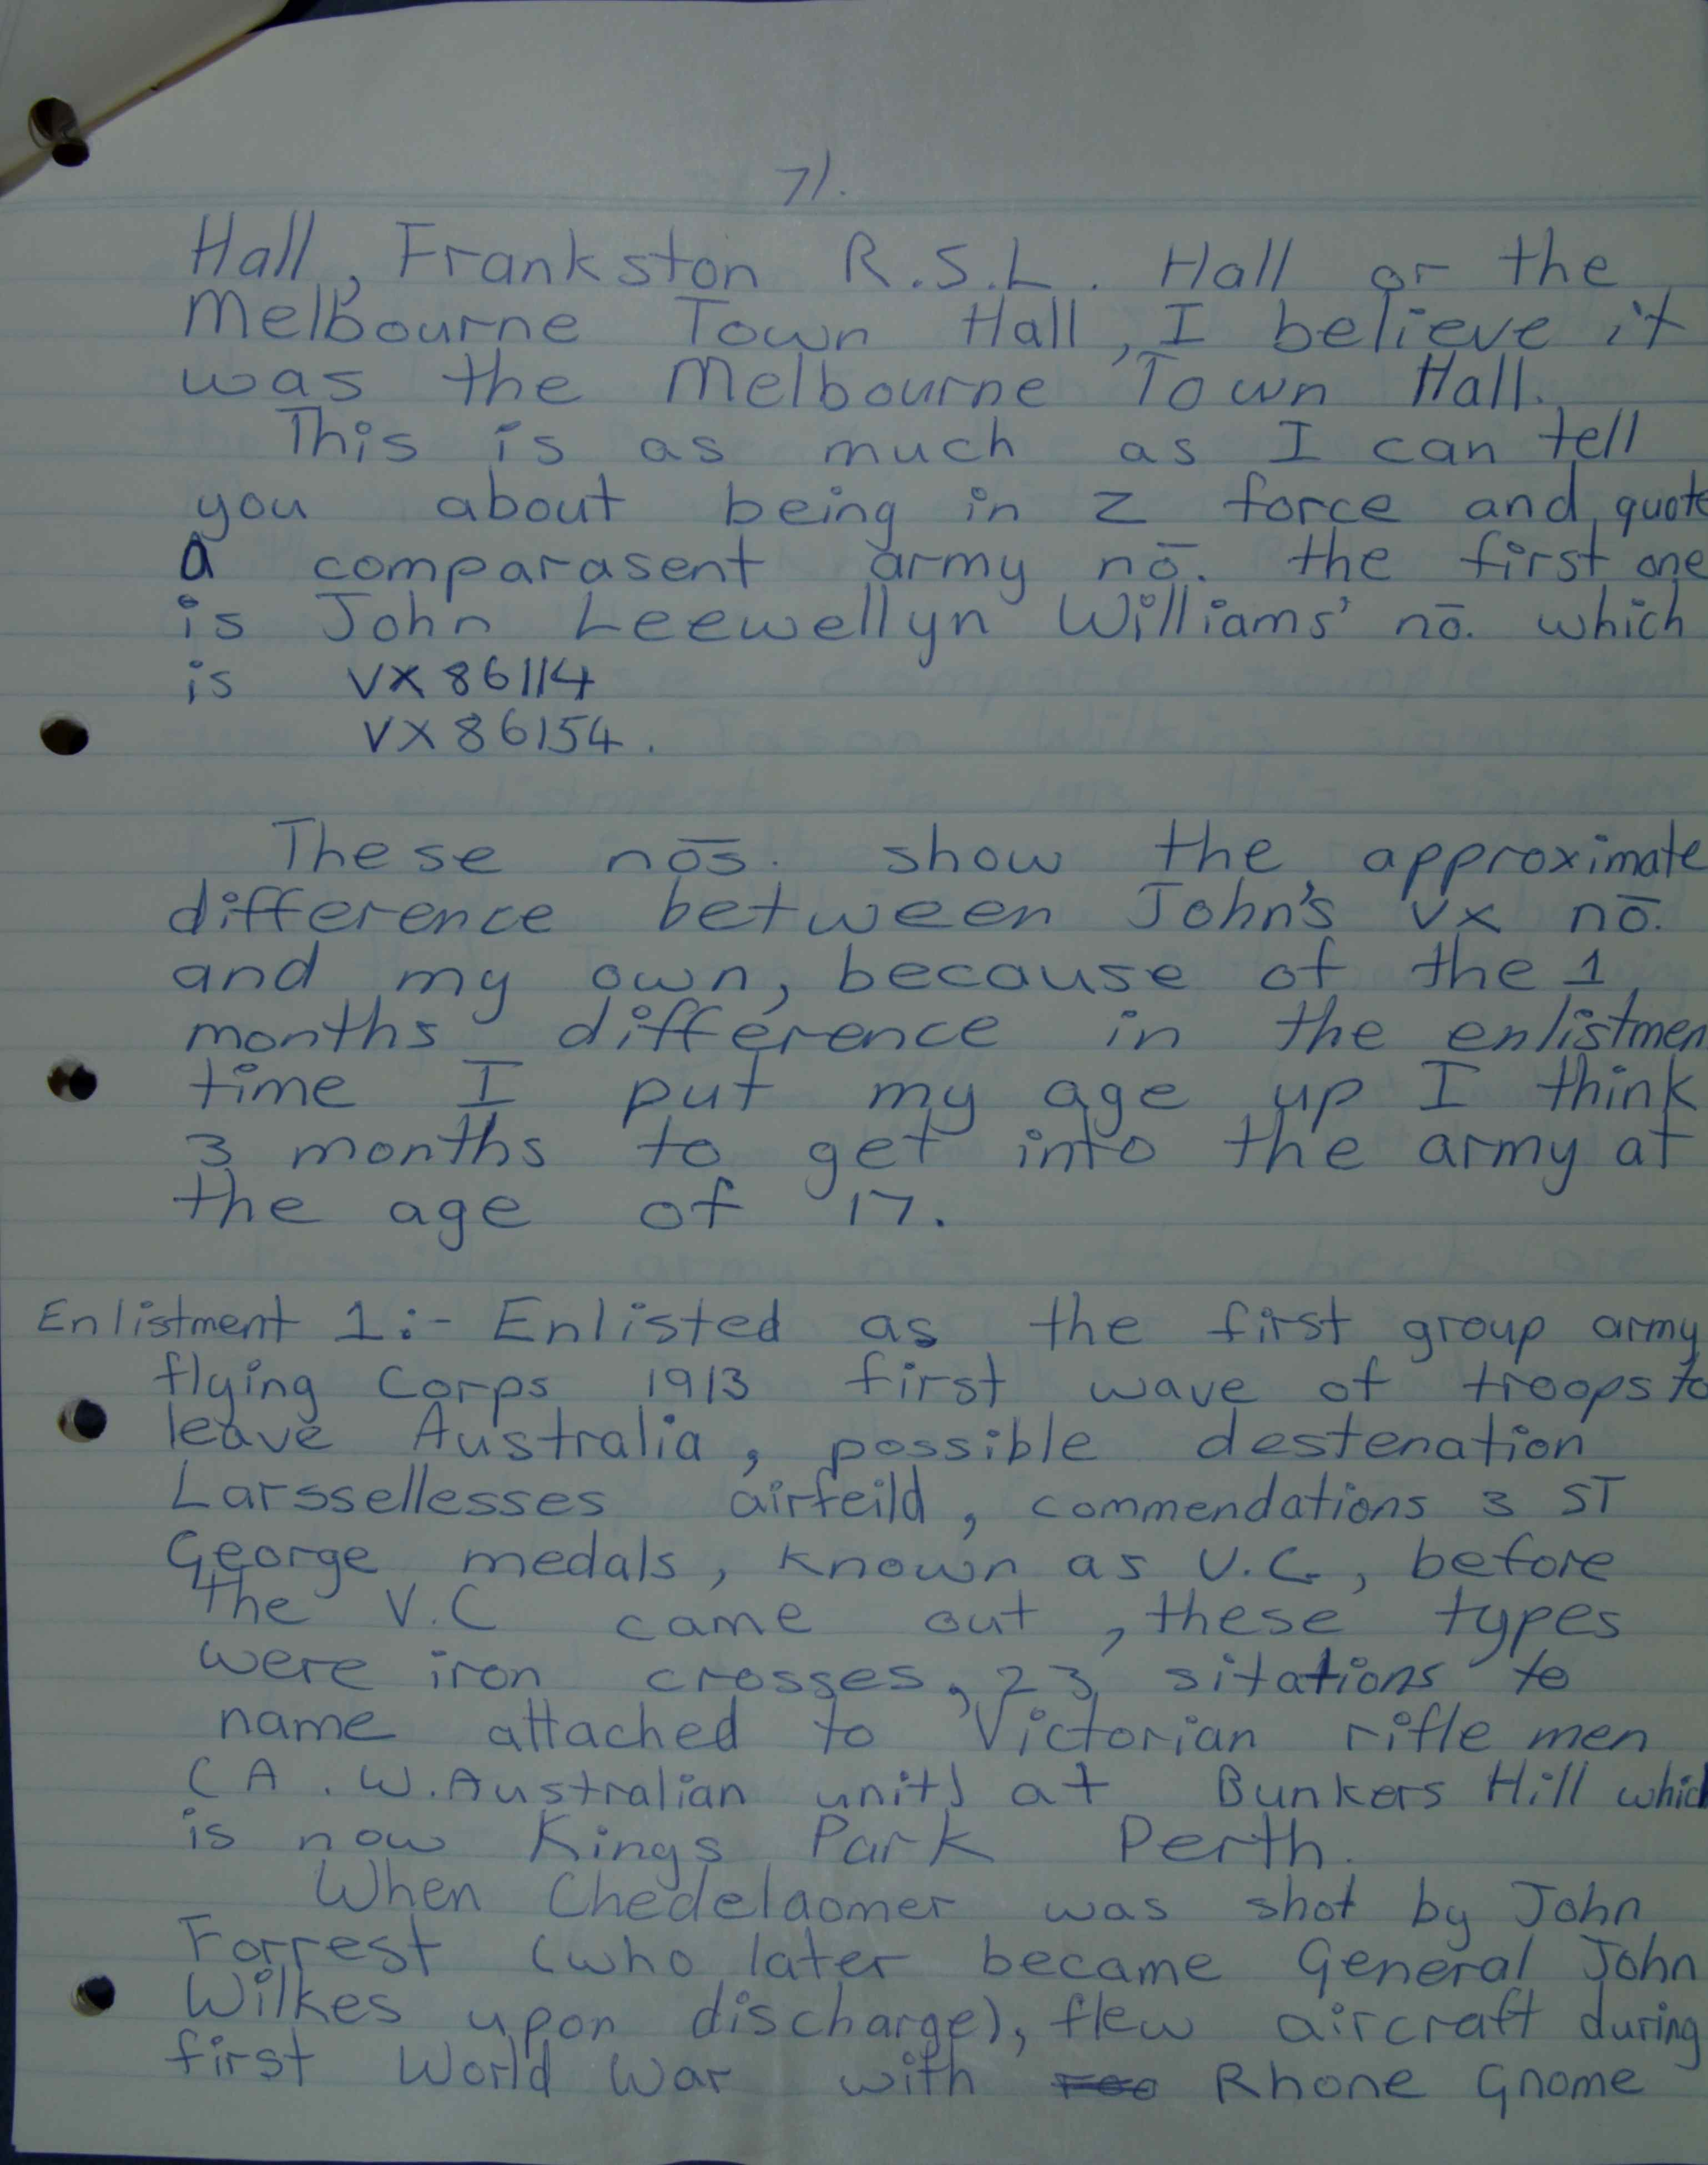 71.
Hall, Frankston R.S.L. Hall or the
Melbourne Town Hall, I believe it
was the Melbourne Town Hall.
This is as much as I can tell
you about being in Z force and quote
a comparasent army no. the first one
is John Leewellyn Williams' no. which
is VX86114
VX86154.
These nos. show the approximate
difference between John's VX no.
and my own, because of the 1
months difference in the enlistmen
time I put my age up I think
3 months to get into the army at
the age of 17.
Enlistment 1:- Enlisted as the first group army
flying Corps 1913 first wave of troops to
leave Australia, possible destenation
Larssellesses airfeild, commendations 3 ST
George medals, known as V.C., before
the V.C came out, these types
were iron crosses, 23 sitations to
name attached to Victorian rifle men
(A. W. Australian unit) at Bunkers Hill which
is now Kings Park Perth.
When Chedelaomer was shot by John
Forrest (who later became General John
Wilkes upon discharge), flew aircraft during
first World War with Rhone Gnome